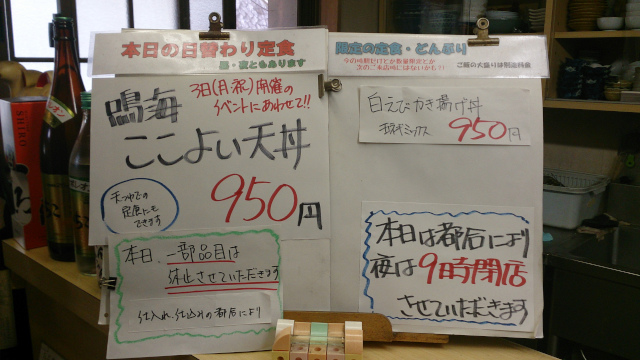 本日の日替わり定食
昼・夜ともあります
鳴海
3日(月・祝)開催の
イベントにあわせて!!
ここよい天丼
950円
天つゆでの
定食にも
できます
本日、一部品目は
休止させていただきます
仕入れ、仕込みの都合により
限定の定食・どんぶり
ご飯の大盛りは別途料金
白えびかき揚げ丼
950円
本日は都合により
夜は9時閉店
させていただきます